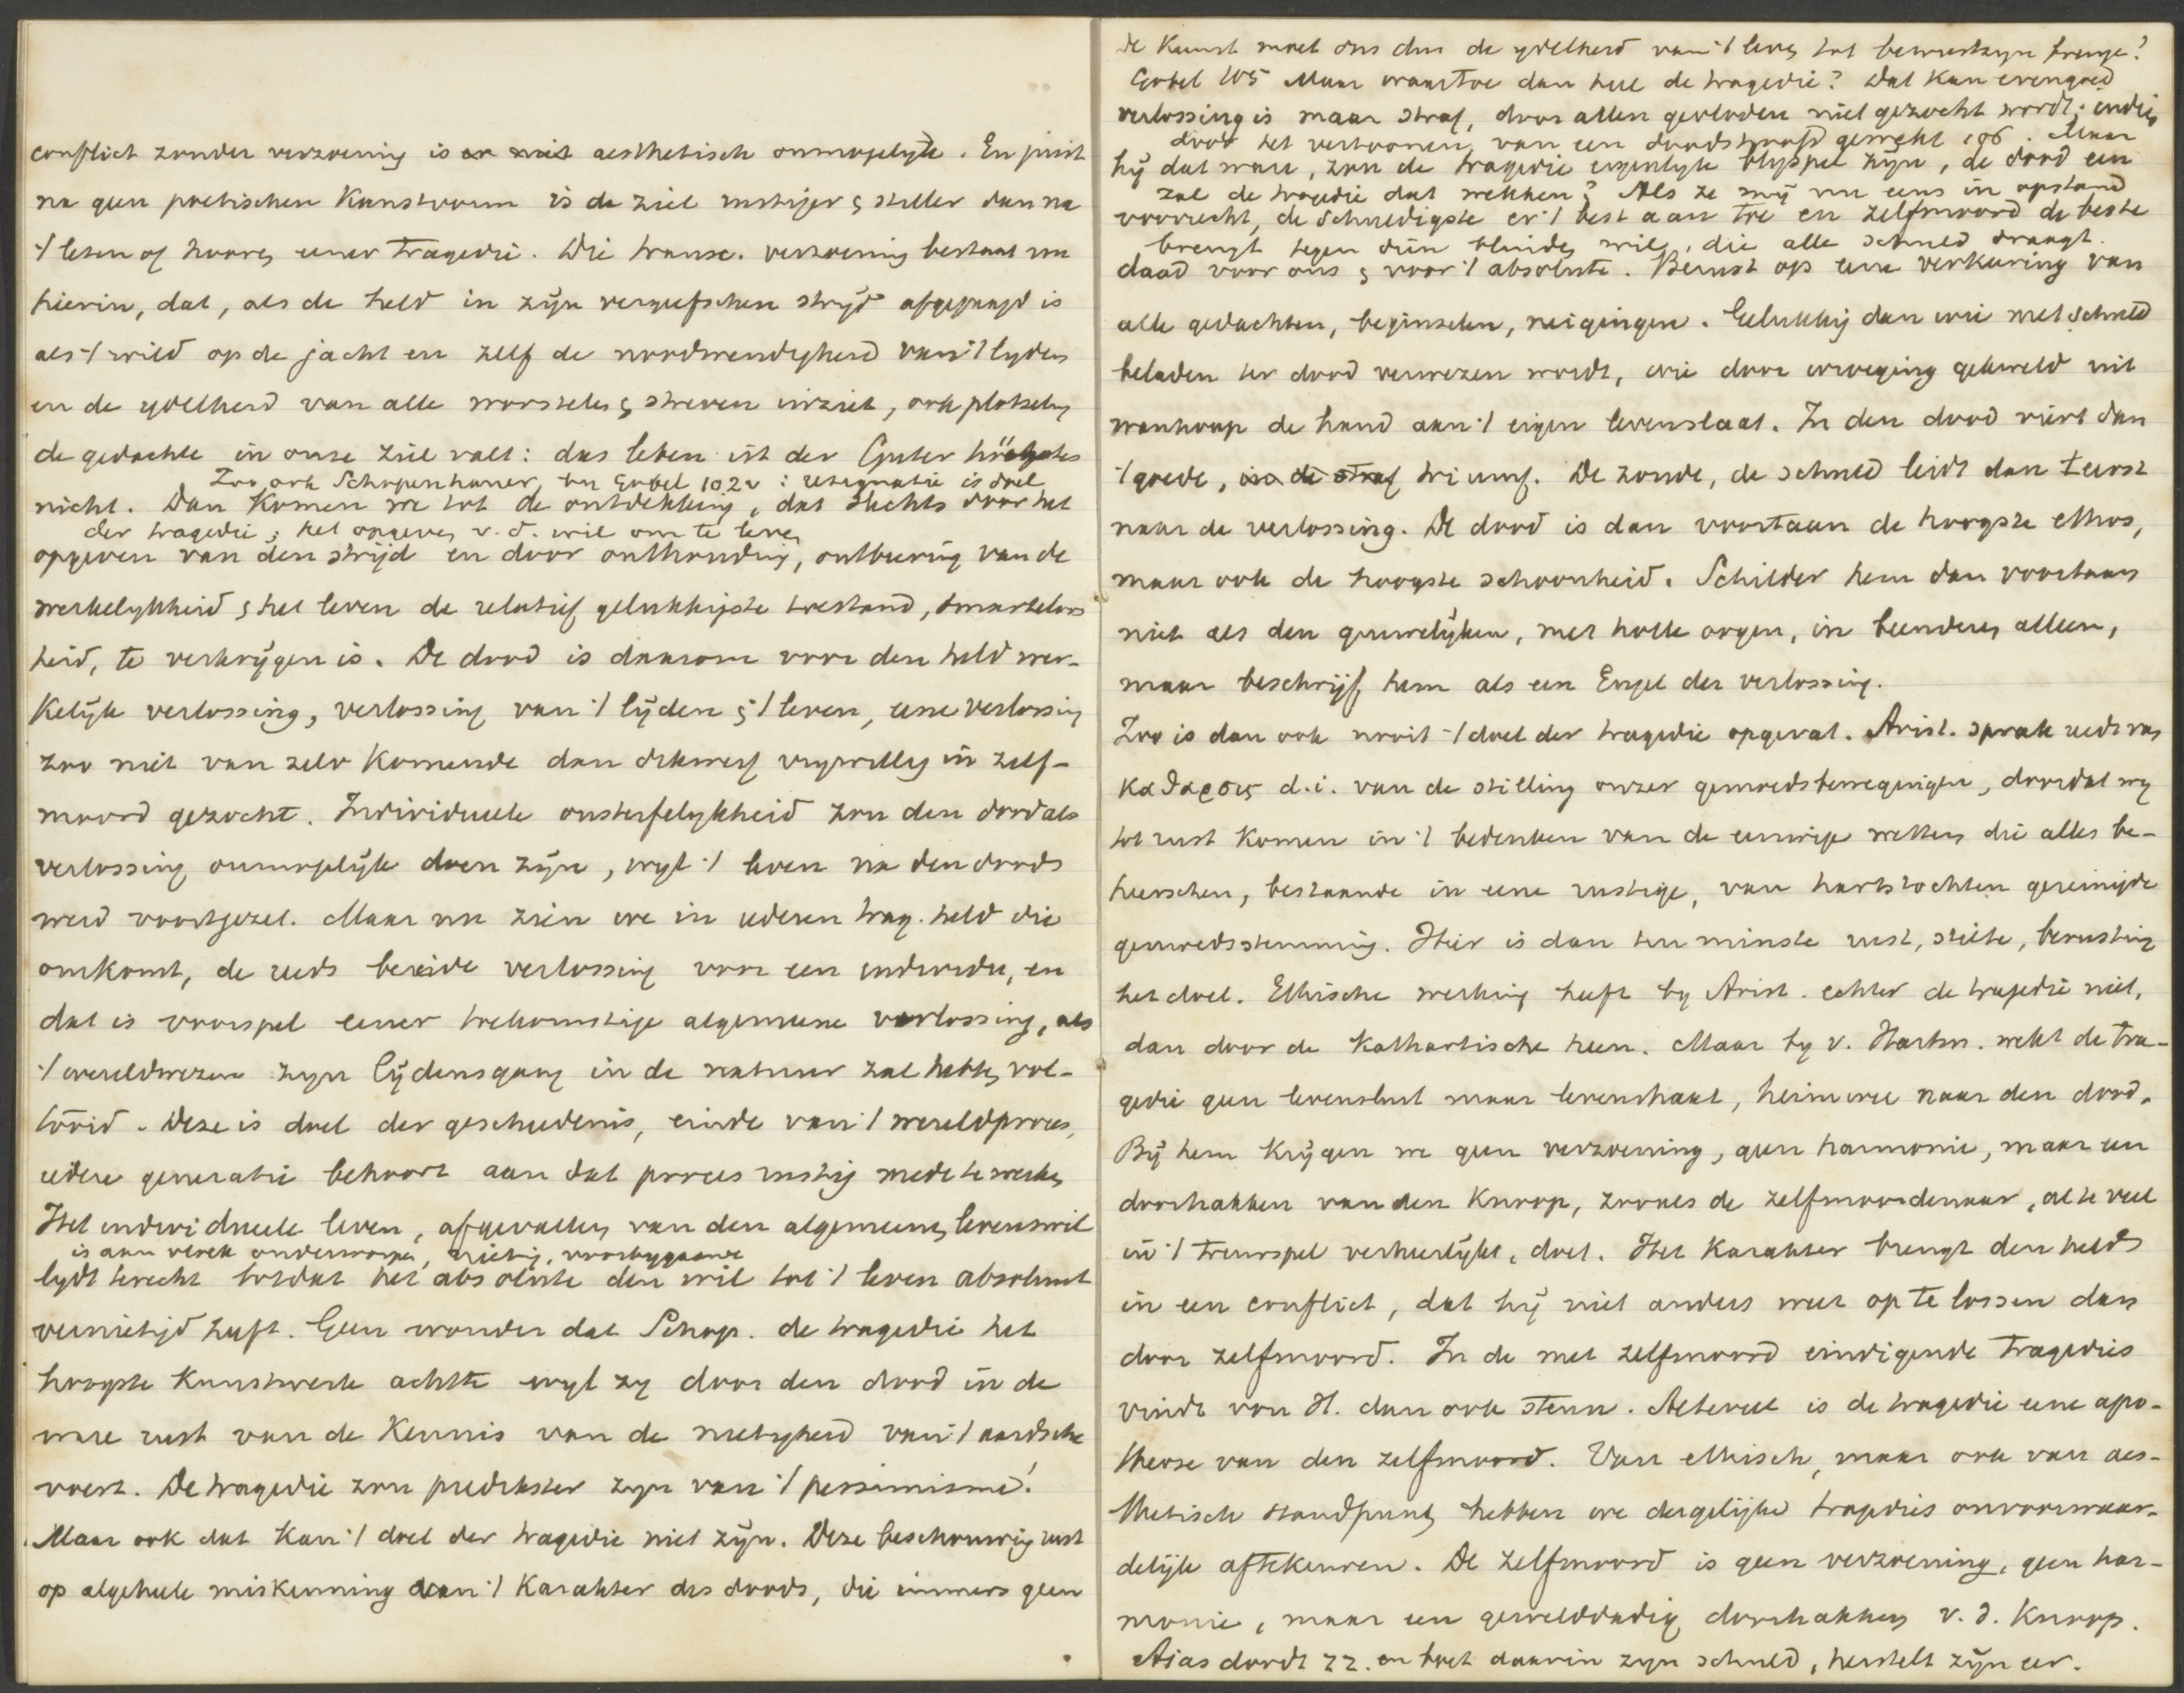 conflict zonder verzoening is aesthetisch onmogelijk. En juist
na geen poëtischen Kunstvorm is de ziel rustiger & stiller dan na
't lezen of hooren eener Tragedie. Die transc. verzoening bestaat nu
hierin, dat, als de held in zijn vergeefschen strijd afgejaagd is
als 't wild op de jacht en zelf de noodwendigheid van 't lyden
en de ydelheid van alle worstelen & streven inziet, ook plotseling
de gedachte in onze ziel valt: das leben ist der Güter höchstes
Zoo ook Schopenhauer, bij Gobel 102v: resignatie is doel
nicht. Dan Komen we tot de ontdekking, dat slechts door het
der tragedie; het opgeven v.d. wil om te leven
opgeven van den strijd en door onthouding, ontbering van de
werkelykheid & het leven de relatief gelukkigste toestand, smarteloos
heid, te verkrijgen is. De dood is daarom voor den held wer-
Kelijk verlossing, verlossing van 't lijden & 't leven, eene verlossing
zoo niet van zelv Komende dan dikwerf vrywillig in zelf-
moord gezocht. Individueele onsterfelykheid zou den dood als
verlossing onmogelijk doen zijn, wyl 't leven na den doods
werd voortgezet. Maar nu zien we in iederen trag. held die
omkomt, de reeds bereide verlossing voor een individu, en
dat is voorspel eener toekomstige algemeene verlossing, als
't wereldwezen zyn lijdensgang in de natuur zal hebben vol-
tooid. Deze is doel der geschiedenis, einde van 't wereldproces,
iedere generatie behoort aan dat proces rustig mede te werken
Het individueele leven, afgevallen van den algemeenen levenswil
is aan vloek onderworpen, nietig, voorbygaande
lydt terecht totdat het absolute den wil tot 't leven absoluut
vernietigd heeft. Geen wonder dat Schop. de tragedie het
hoogste Kunstwerk achtte wyl zy door den dood in de
ware rust van de Kennis van de nietigheid van 't aardsche
voert. De tragedie zou predikster zyn van 't pessimisme!
Maar ook dat Kan 't doel der tragedie niet zijn. Deze beschouwing rust
op algeheele miskenning van 't Karakter des doods, die immers geen
de Kunst moet ons dus de ydelheid van 't leven tot bewustzyn brengen?
Gobel 105 Maar waartoe dan heel de tragedie? Dat Kan evengoed
verlossing is maar straf, door allen gevloden niet gezocht wordt; indien
door het vertoonen van een doodshoofd gewekt 106. Maar
hij dat ware, zou de tragedie eigenlyk blyspel zijn, de dood een
zal de tragedie dat wekken? Als ze mij nu eens in opstand
voorrecht, de schuldigste er 't best aan toe en zelfmoord de beste
brengt tegen dien blinden wil, die alle schuld draagt.
daad voor ons & voor 't absolute. Berust op eene verkeering van
alle gedachten, beginselen, neigingen. Gelukkig dan wie met schuld
beladen ter dood verwezen wordt, wie door wroeging gekweld uit
wanhoop de hand aan 't eigen leven slaat. In den dood viert dan
't goede, triumf. De zonde, de schuld leidt dan 't eerst
naar de verlossing. De dood is dan voortaan de hoogste ethos,
maar ook de hoogste schoonheid. Schilder hem dan voortaan
niet als den gruwelijken, met holle oogen, in beenderen alleen,
maar beschrijf hem als een Engel der verlossing.
Zoo is dan ook nooit 't doel der tragedie opgevat. Arist. sprak reeds van
καθαρσις d.i. van de stilling onzer gemoedsbewegingen, doordat wy
tot rust Komen in 't bedenken van de eeuwige wetten die alles be-
heerschen, bestaande in eene rustige, van hartstochten gereinigde
gemoedsstemming. Hier is dan ten minste rust, stilte, berusting
het doel. Ethische werking heeft by Arist. echter de tragedie niet,
dan door de Kathartische heen. Maar by v. Hartm. wekt de tra-
gedie geen levenslust maar levenshaat, heimwee naar den dood.
Bij hem Krijgen we geen verzoening, geen harmonie, maar een
doorhakken van den Knoop, zooals de zelfmoordenaar, al te veel
in 't treurspel verheerlijkt, doet. Het Karakter brengt den helds
in een conflict, dat hij niet anders weet op te lossen dan
door zelfmoord. In de met zelfmoord eindigende Tragedies
vindt von H. dan ook steun. Alteveel is de tragedie eene apo-
theose van den zelfmoord. Van ethisch, maar ook van aes-
thetisch standpunt hebben we dergelijke tragedies onvoorwaar-
delijk aftekeuren. De zelfmoord is geen verzoening, geen har-
monie, maar een gewelddadig doorhakken v.d. Knoop.
Aias doodt zz. en boet daarin zyn schuld, herstelt zijn eer.